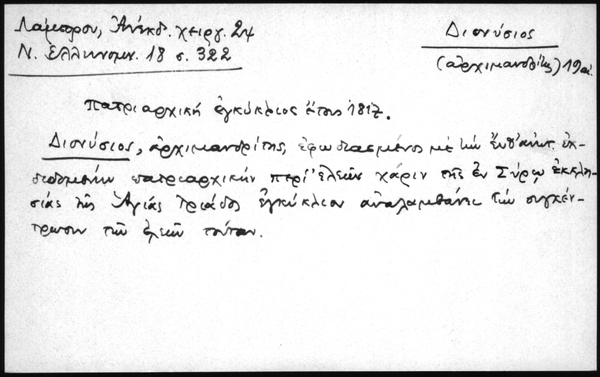 Λάμπρου, Ἀνέκδ. χειργ. 24
Ν. Ἑλληνομν. 18 σ. 322
Διονύσιος
(ἀρχιμανδρίτης) 19 αἰ.
Πατριαρχική ἐγκύκλιος ἔτους 1817.
Διονύσιος, ἀρχιμανδρίτης, ἐφωδιασμένος μέ τήν ἐκ-
διδομένην πατριαρχικήν περί ἐλεῶν χάριν τῆς ἐν Σύρῳ ἐκκλη-
σίας τῆς Ἁγίας Τριάδος ἐγκύκλιον ἀναλαμβάνει τήν συγκέν-
τρωσιν τῶν ἐλεῶν τούτων.